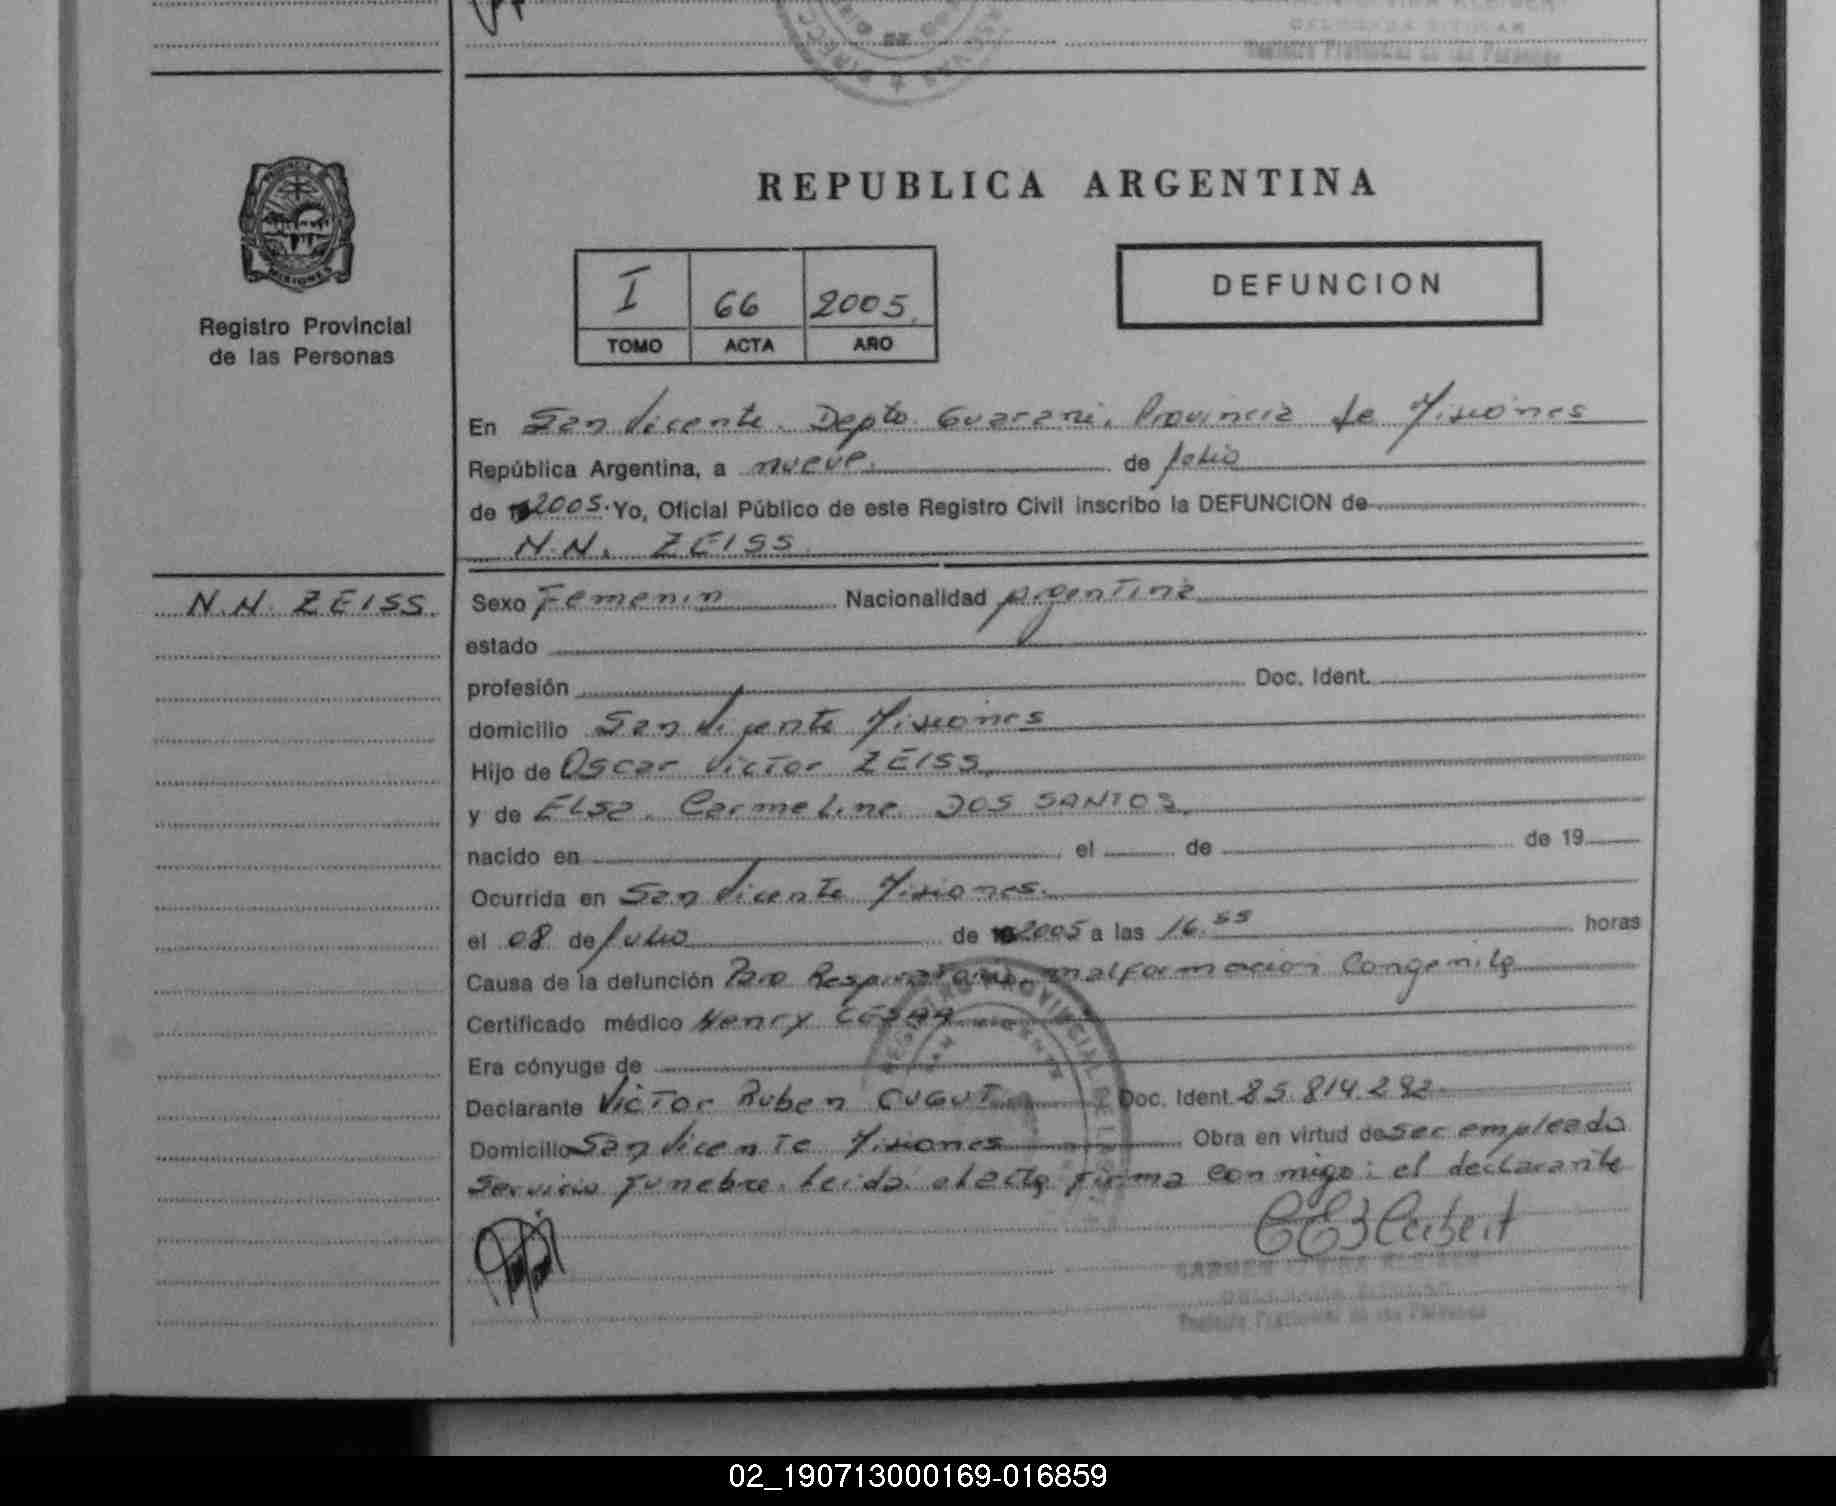 REPUBLICA ARGENTINA
PROVINCIA
MISIONES
Registro Provincial
de las Personas
I 66 2005.
TOMO ACTA AÑO
DEFUNCION
En San Vicente. Depto. Guarani. Provincia de Misiones
República Argentina, a nueve. de Julio
de 2005. Yo, Oficial Público de este Registro Civil inscribo la DEFUNCION de
N.N. ZEISS
N.N. ZEISS.
Sexo Femenin Nacionalidad Argentina
estado
profesión Doc. Ident.
domicilio San Vicente Misiones
Hijo de Oscar Victor ZEISS
y de Elsa. Carmeline DOS SANTOS.
nacido en el de de 19
Ocurrida en San Vicente Misiones.
el 08 de Julio de 2005 a las 16.55 horas
Causa de la defunción Paro Respiratorio malformacion Congenita
Certificado médico Henry CESAR
Era cónyuge de
Declarante Victor Ruben Doc. Ident. 85.814.292
Domicilio San Vicente Misiones Obra en virtud de ser empleado
Servicio Funebre. Leida el acta firma conmigo: el declarante
REGISTRO PROVINCIAL
SAN VICENTE
DELEGADA TITULAR
Registro Provincial de las Personas
02_190713000169-016859